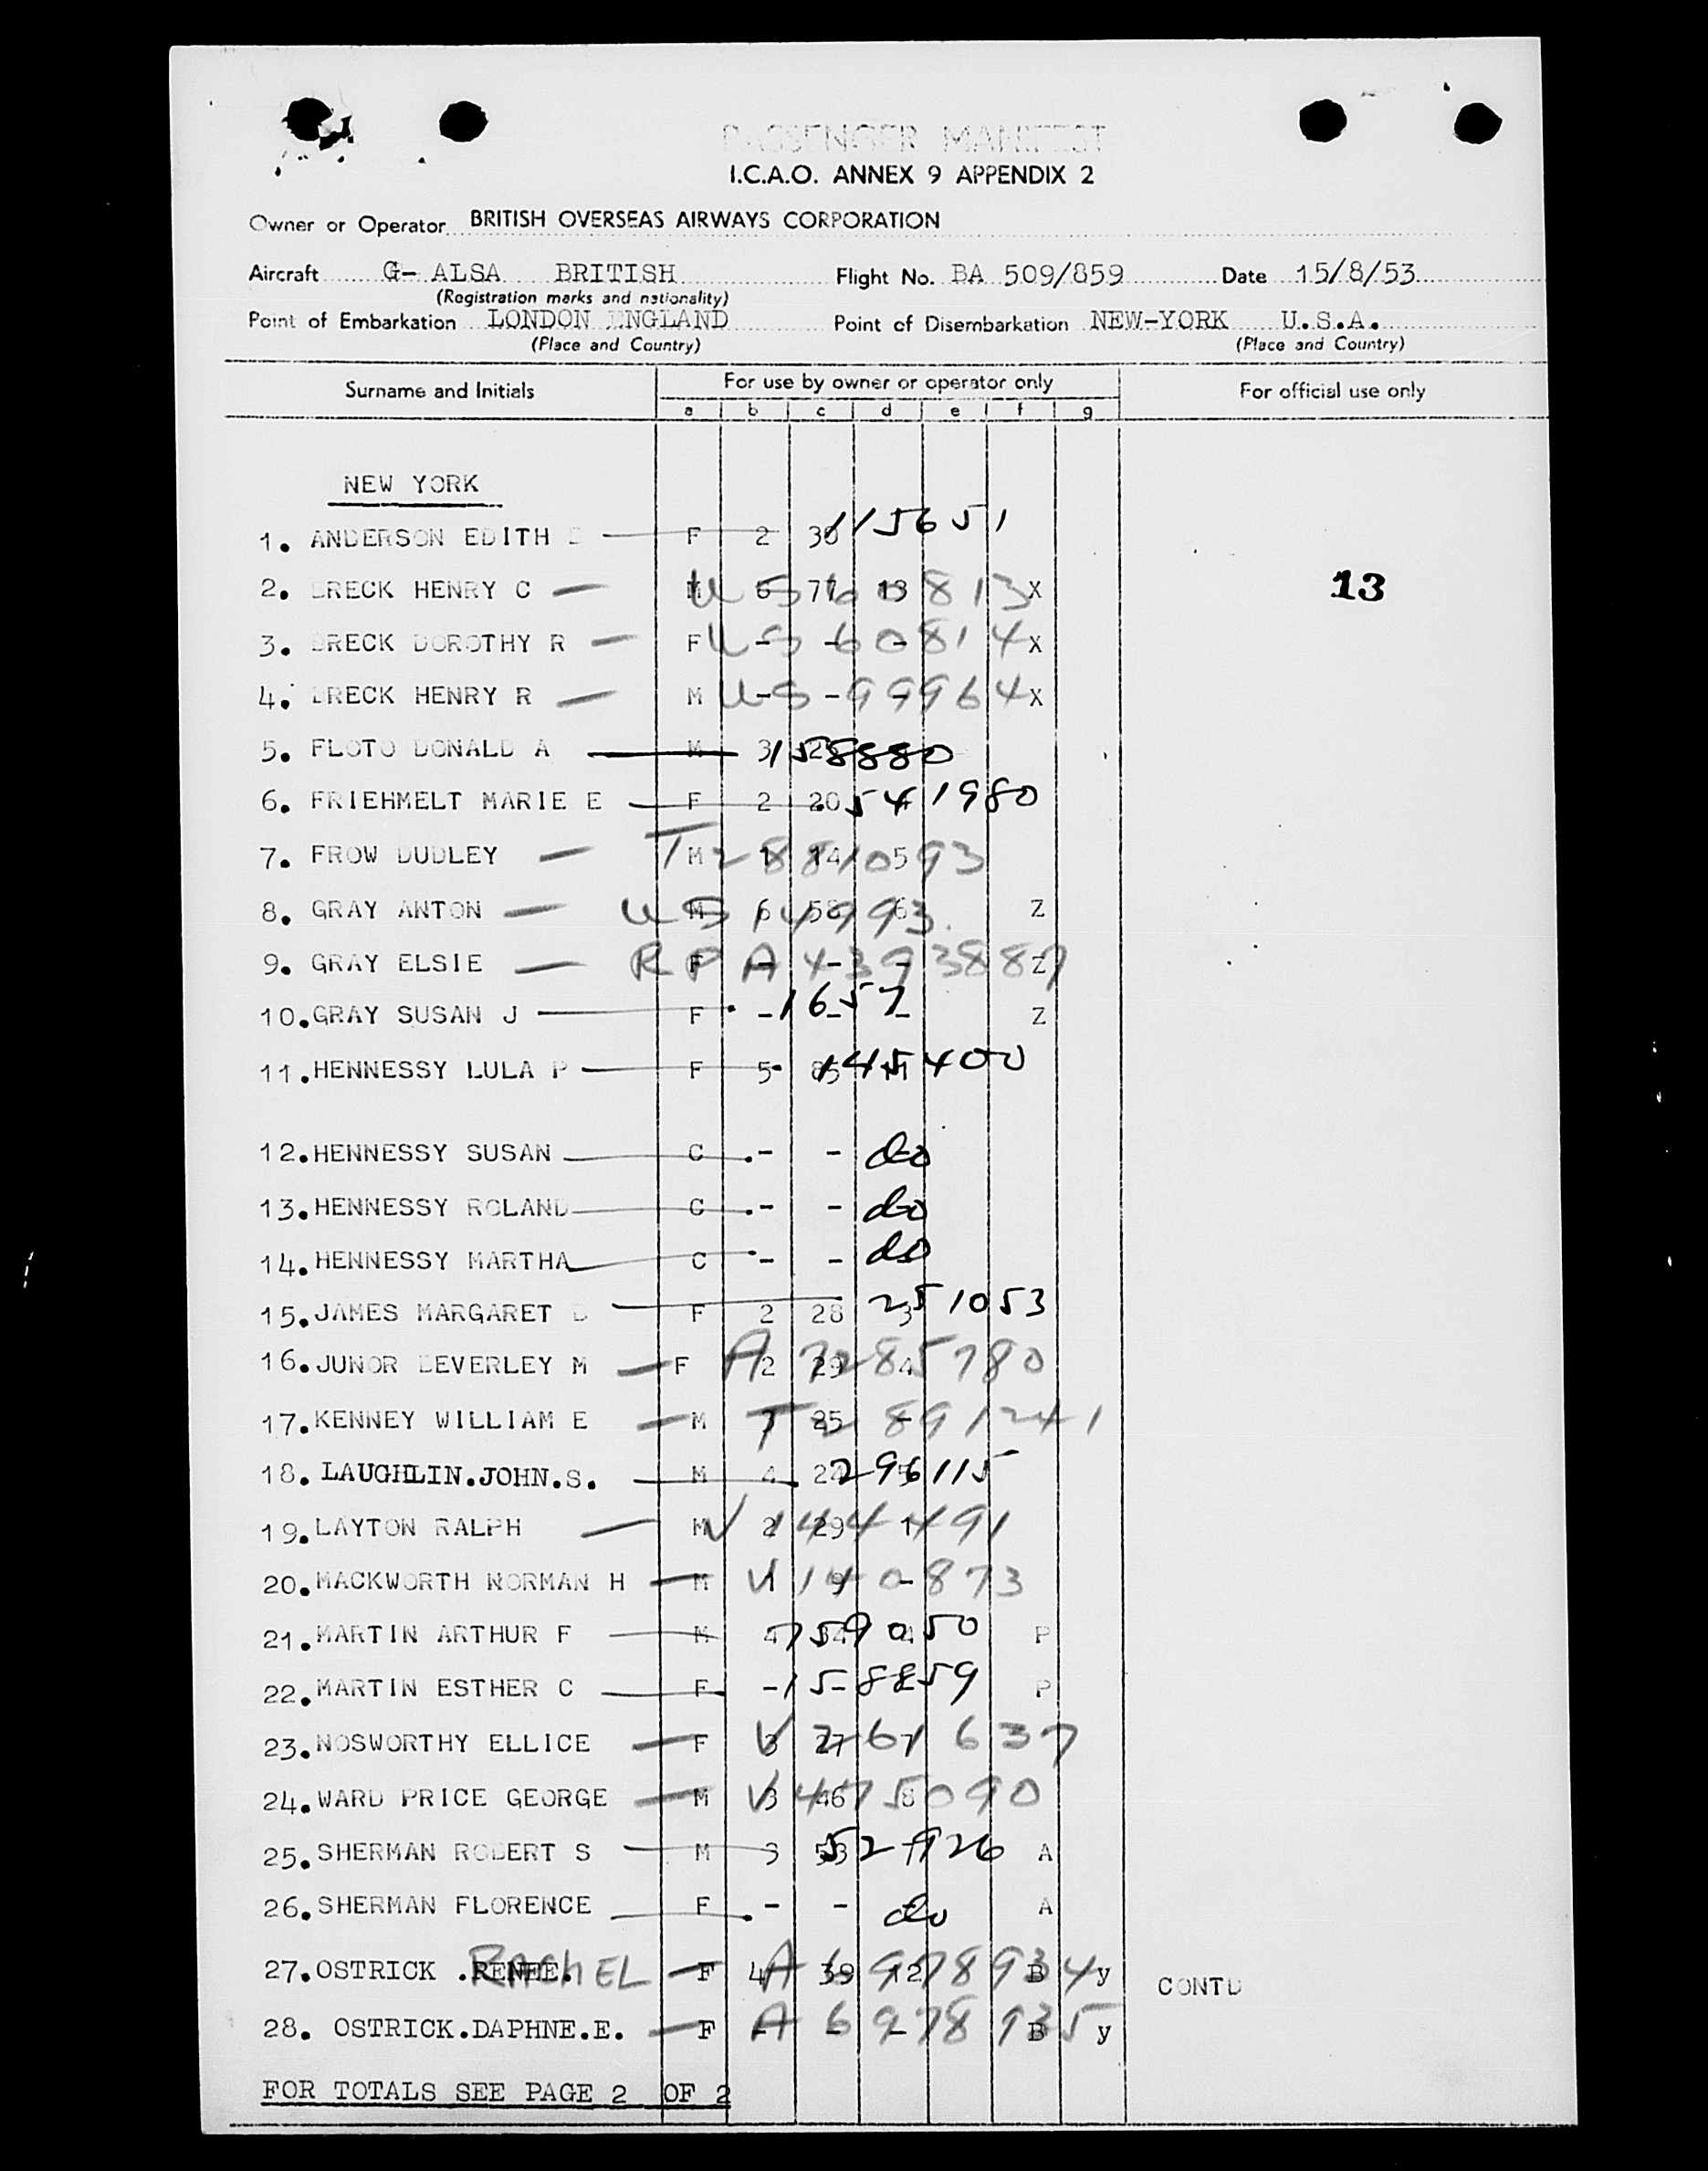 PASSENGER MANIFEST
I.C.A.O. ANNEX 9 APPENDIX 2
Owner or Operator BRITISH OVERSEAS AIRWAYS CORPORATION
Aircraft G- ALSA BRITISH Flight No. BA 509/859 Date 15/8/53
(Registration marks and nationality)
Point of Embarkation LONDON ENGLAND Point of Disembarkation NEW-YORK U.S.A.
(Place and Country) (Place and Country)
Surname and Initials For use by owner or operator only For official use only
a b c d e f g
NEW YORK
1. ANDERSON EDITH E F 2 30 115651
2. BRECK HENRY C M 6 77 13 US 60813 X 13
3. BRECK DOROTHY R F - - - US 60814 X
4. BRECK HENRY R M - - - US 99964 X
5. FLOTO DONALD A M 3 158880
6. FRIEHMELT MARIE E F 2 20 541980
7. FROW DUDLEY M 1 14 5 T2881093
8. GRAY ANTON M 6 58 6 US 14993 Z
9. GRAY ELSIE F - - - RPA 4393887 Z
10. GRAY SUSAN J F - - - 1657 Z
11. HENNESSY LULA P F 5 85 11 145400
12. HENNESSY SUSAN C - - do
13. HENNESSY ROLAND C - - do
14. HENNESSY MARTHA C - - do
15. JAMES MARGARET D F 2 28 3 251053
16. JUNOR BEVERLEY M F 2 29 4 A 7285780
17. KENNEY WILLIAM E M 25 - T2891241
18. LAUGHLIN.JOHN.S. M 4 24 296115
19. LAYTON RALPH M 2 29 1 V 1444491
20. MACKWORTH NORMAN H M 1 9 - V 140873
21. MARTIN ARTHUR F M 4 34 4 759050 P
22. MARTIN ESTHER C F - - 158859 P
23. NOSWORTHY ELLICE F 3 27 7 V 261637
24. WARD PRICE GEORGE M 3 46 8 V 475090
25. SHERMAN ROBERT S M 3 53 52926 A
26. SHERMAN FLORENCE F - - do A
27. OSTRICK .RENEE. RACHEL F 4 39 12 A 6978934 B y CONTD
28. OSTRICK.DAPHNE.E. F - - - A 6978935 B y
FOR TOTALS SEE PAGE 2 OF 2